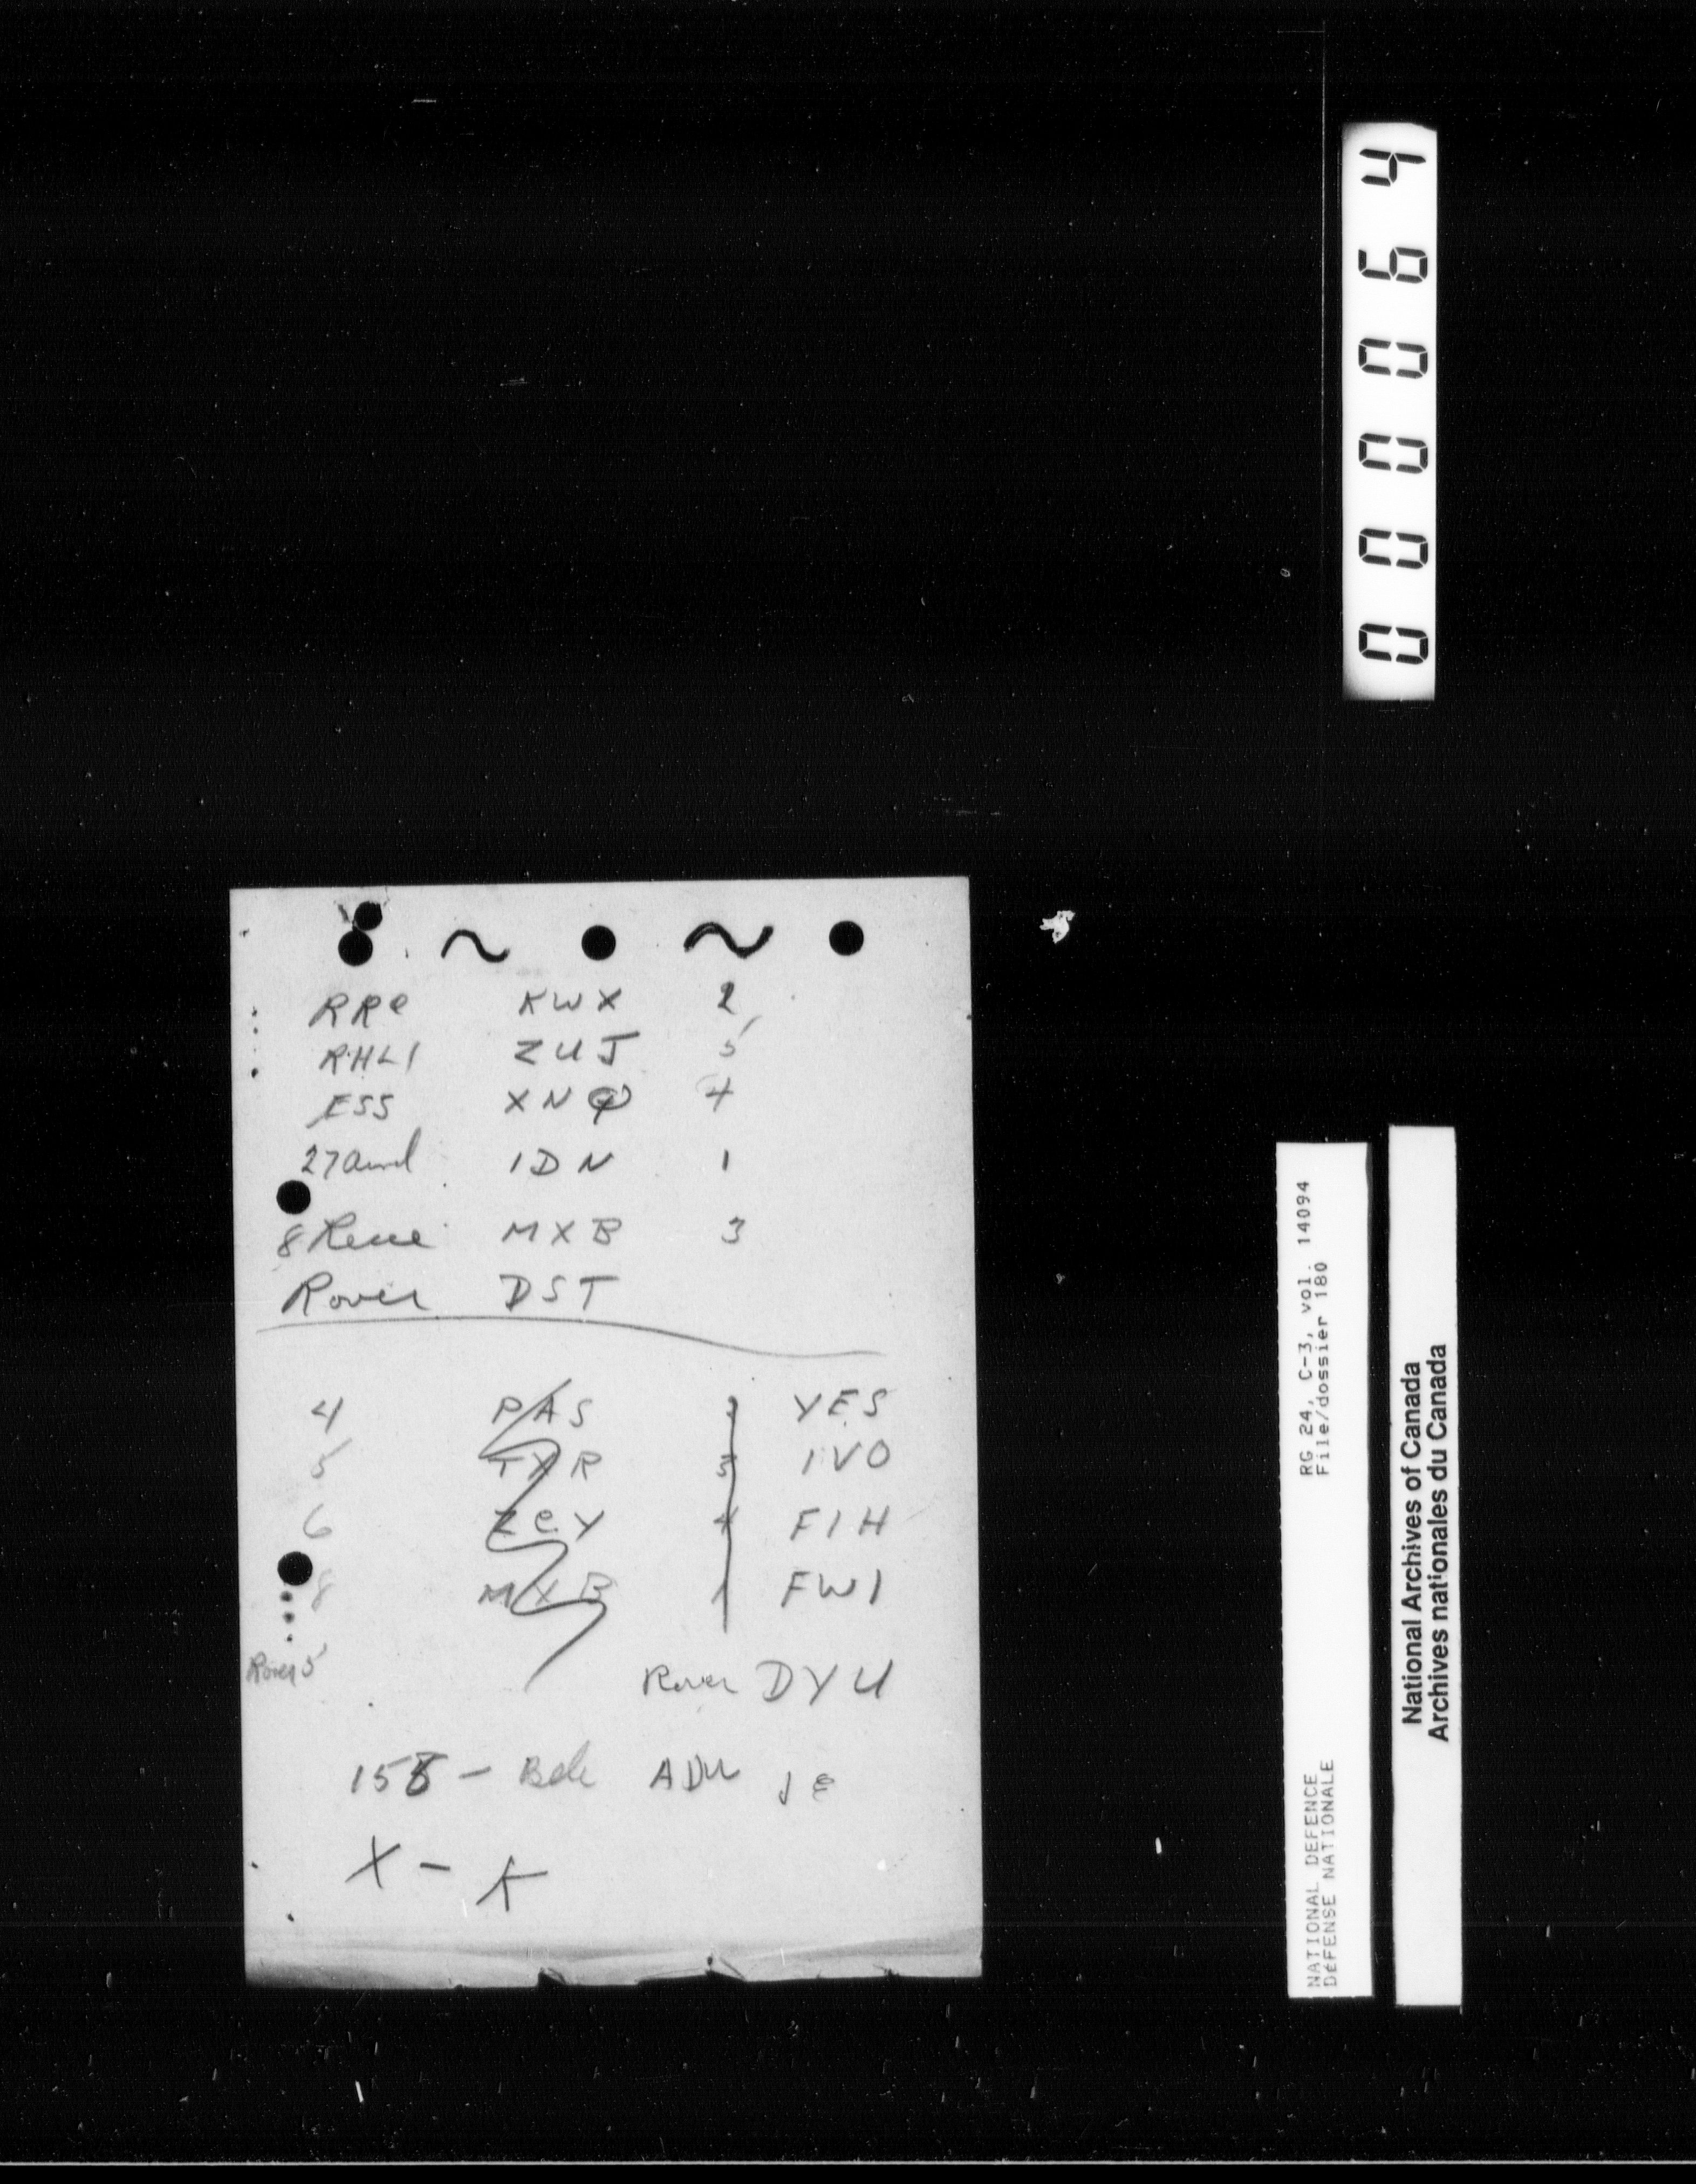 000064
RRC KWX 2
RHLI ZUJ 5
ESS XNQ 4
27 Armd IDN 1
8 Recce MXB 3
Rover DST
4 PAS YES
5 TXR 3 IVO
6 ZCY 4 FIH
8 MXB 1 FWI
Rover 5
Rover DYU
158 - Bde ADU
X - K
RG 24, C-3, vol. 14094
File/dossier 180
NATIONAL DEFENCE
DÉFENSE NATIONALE
National Archives of Canada
Archives nationales du Canada